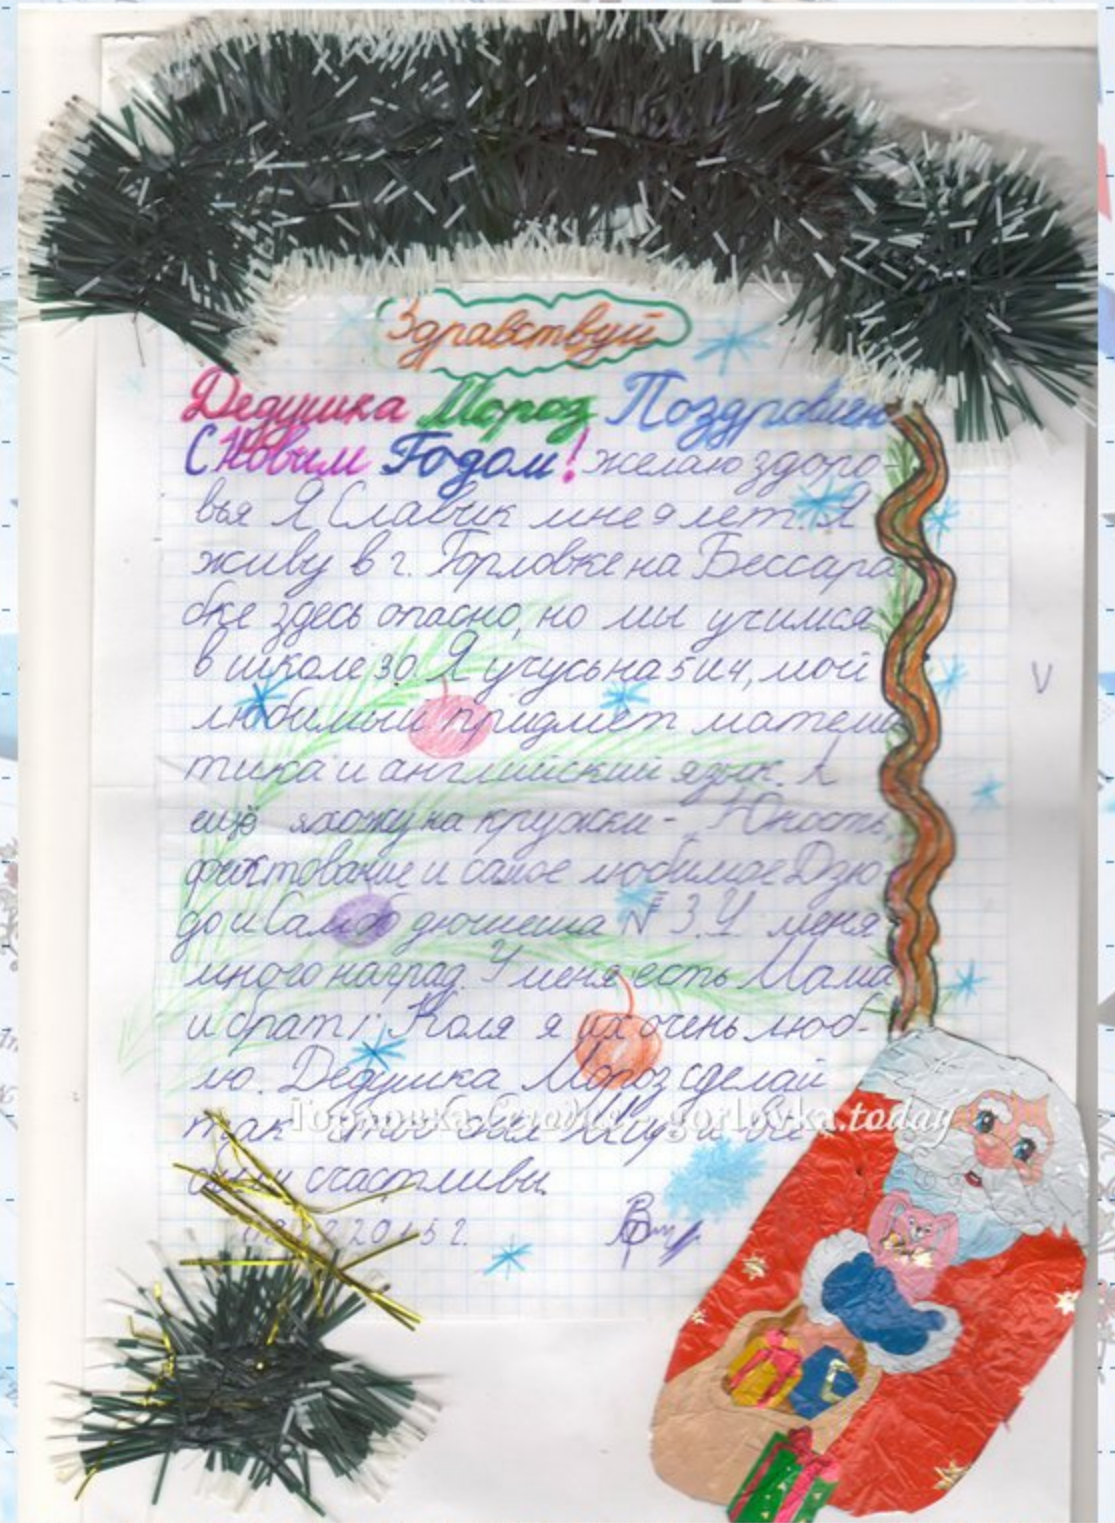 Здравствуй
Дедушка Мороз Поздровляем
С Новым Годом! желаю здоро-
вья Я Славик мне 9 лет. Я
живу в г. Горловке на Бессара
бке здесь опасно, но мы учимся
в школе 30. Я учусь на 5 и 4, мой
любимый придмет матема
тика и английский язык. А
ещё я хожу на кружки - "Юность,
фихтование и самое любимое Дзю
до и Самбо дючшеша № 3. У меня
много наград. У меня есть Мама
и брат: Коля я их очень люб-
лю. Дедушка Мороз сделай
так чтоб был Мир и все
были счастливы.
2015 г.
Горловка Сегодня - gorlovka.today
V